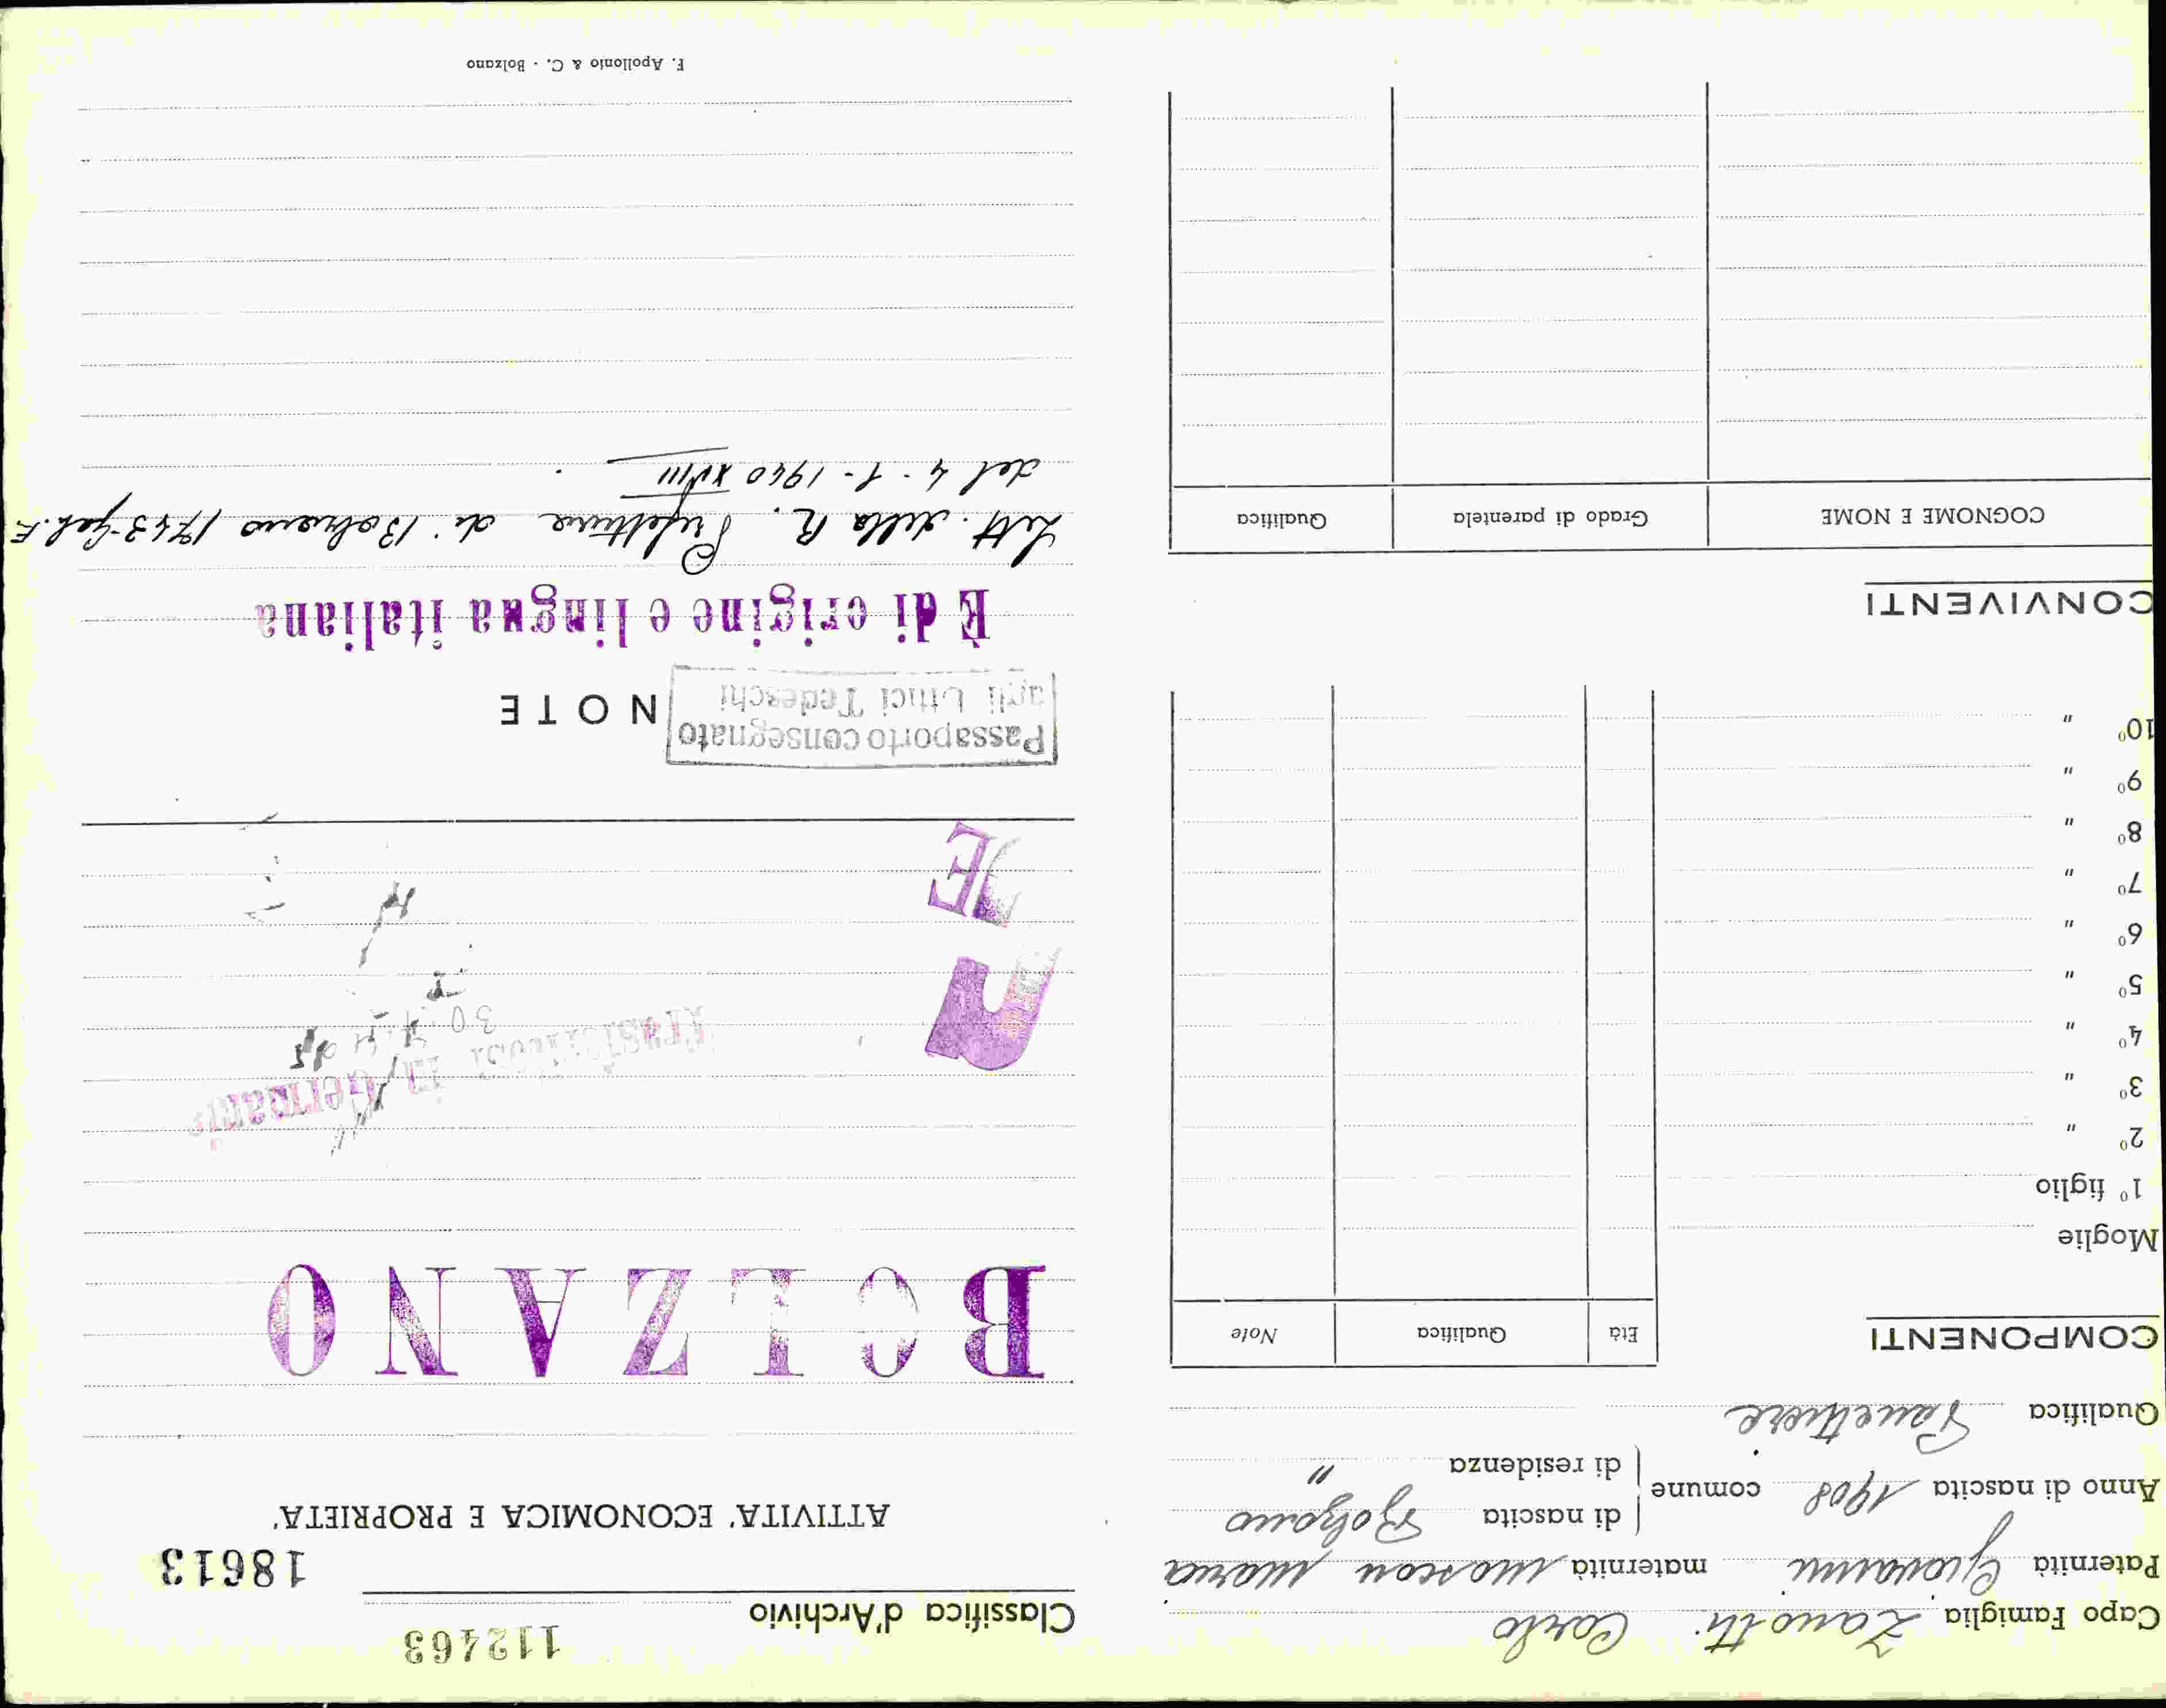 Capo Famiglia Zanotti Carlo
Paternità Giovanni maternità Moscon Maria
Anno di nascita 1908 comune
di nascita Bolzano
di residenza "
Qualifica Panettiere
COMPONENTI
Età Qualifica Note
Moglie
1° figlio
2° "
3° "
4° "
5° "
6° "
7° "
8° "
9° "
10° "
CONVIVENTI
COGNOME E NOME Grado di parentela Qualifica
112463
Classifica d'Archivio
18613
ATTIVITA' ECONOMICA E PROPRIETA'
BOLZANO
in Germania
Passaporto consegnato
agli Uffici Tedeschi
NOTE
È di origine e lingua italiana
Lett. della R. Prefettura di Bolzano 1743-Gab. E
del 4-1-1940 XVIII
F. Apollonio & C. - Bolzano